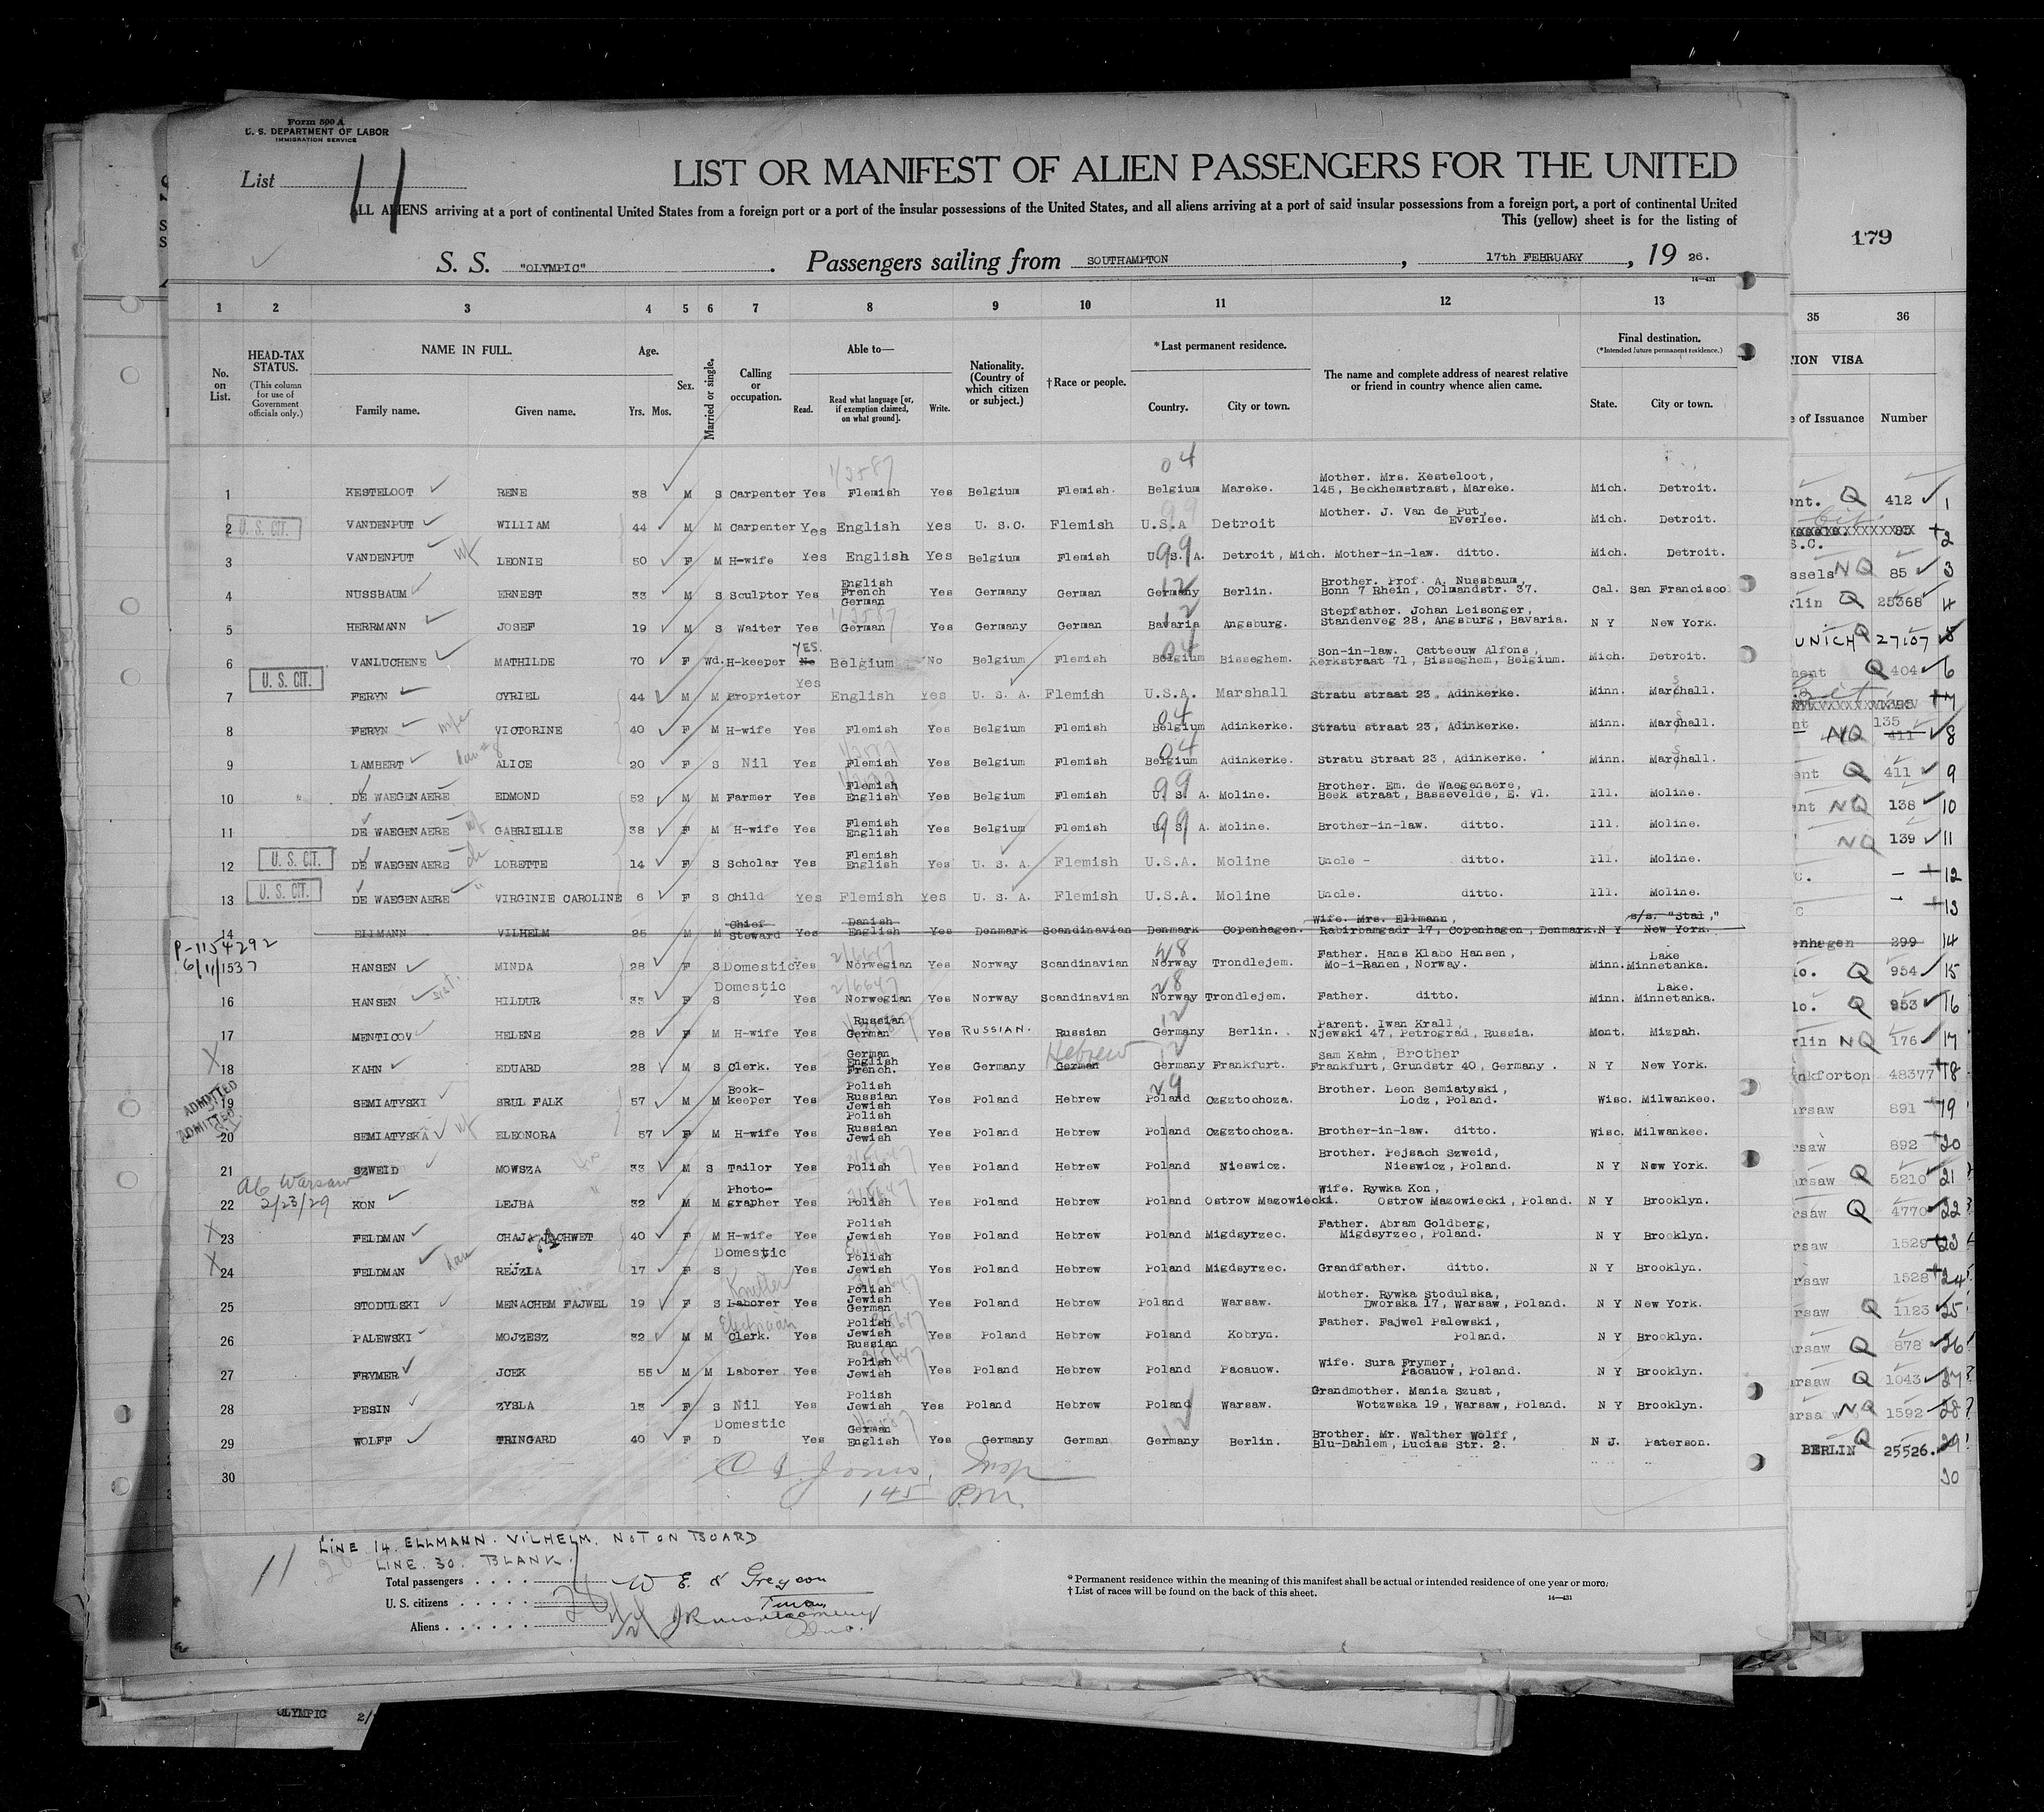 Form 500 A
U. S. DEPARTMENT OF LABOR
IMMIGRATION SERVICE
List 11
LIST OR MANIFEST OF ALIEN PASSENGERS FOR THE UNITED
ALL ALIENS arriving at a port of continental United States from a foreign port or a port of the insular possessions of the United States, and all aliens arriving at a port of said insular possessions from a foreign port, a port of continental United
This (yellow) sheet is for the listing of
179
S. S. "OLYMPIC" . Passengers sailing from SOUTHAMPTON , 17th FEBRUARY , 19 26.
14—431
1 2 3 4 5 6 7 8 9 10 11 12 13 35 36
No. on List.
HEAD-TAX STATUS.
(This column for use of Government officials only.)
NAME IN FULL.
Family name. Given name.
Age.
Yrs. Mos.
Sex.
Married or single.
Calling or occupation.
Able to—
Read. Read what language [or, if exemption claimed, on what ground]. Write.
Nationality. (Country of which citizen or subject.)
†Race or people.
*Last permanent residence.
Country. City or town.
The name and complete address of nearest relative or friend in country whence alien came.
Final destination.
(*Intended future permanent residence.)
State. City or town.
TION VISA
e of Issuance Number
1 KESTELOOT RENE 38 M S Carpenter Yes Flemish Yes Belgium Flemish. 04 Belgium Mareke. Mother. Mrs. Kesteloot, 145, Beckhemstrast, Mareke. Mich. Detroit. ent. Q 412 1
2 U. S. CIT. VANDENPUT WILLIAM 44 M M Carpenter Yes English Yes U. S.C. Flemish U.S.A Detroit Mother. J. Van de Put, Everlee. Mich. Detroit. 2
3 VANDENPUT wf LEONIE 50 F M H-wife Yes English Yes Belgium Flemish 99 U.S.A. Detroit, Mich. Mother-in-law. ditto. Mich. Detroit. ssels NQ 85 3
4 NUSSBAUM ERNEST 33 M S Sculptor Yes English French German Yes Germany German 12 Germany Berlin. Brother. Prof. A. Nussbaum, Bonn 7 Rhein, Colmandstr. 37. Cal. San Francisco rlin Q 25368 4
5 HERRMANN JOSEF 19 M S Waiter Yes German Yes Germany German 12 Bavaria Angsburg. Stepfather. Johan Leisonger, Standenveg 28, Angsburg, Bavaria. N Y New York. UNICH Q 27107 5
6 VANLUCHENE MATHILDE 70 F Wd. H-keeper YES. No Belgium No Belgium Flemish 04 Belgium Bisseghem. Son-in-law. Catteeuw Alfons, Kerkstraat 71, Bisseghem, Belgium. Mich. Detroit. ment Q 404 6
7 U. S. CIT. FERYN CYRIEL 44 M M Proprietor Yes English Yes U. S. A. Flemish U.S.A. Marshall Stratu straat 23, Adinkerke. Minn. Marchall. 7
8 FERYN wife VICTORINE 40 F M H-wife Yes Flemish Yes Belgium Flemish 04 Belgium Adinkerke. Stratu straat 23, Adinkerke. Minn. Marchall. nt NQ 135 411 8
9 LAMBERT dau #8 ALICE 20 F S Nil Yes Flemish Yes Belgium Flemish 04 Belgium Adinkerke. Stratu Straat 23, Adinkerke. Minn. Marchall. ent Q 411 9
10 DE WAEGENAERE EDMOND 52 M M Farmer Yes Flemish English Yes Belgium Flemish 99 U. S. A. Moline. Brother. Em. de Waegenaere, Beek straat, Bassevelde, E. Vl. Ill. Moline. ent NQ 138 10
11 DE WAEGENAERE wf GABRIELLE 38 F M H-wife Yes Flemish English Yes Belgium Flemish 99 U. S. A. Moline. Brother-in-law. ditto. Ill. Moline. NQ 139 11
12 U. S. CIT. DE WAEGENAERE LORETTE 14 F S Scholar Yes Flemish English Yes U. S. A. Flemish U.S.A. Moline Uncle - ditto. Ill. Moline. C. - 12
13 U. S. CIT. DE WAEGENAERE " VIRGINIE CAROLINE 6 F S Child Yes Flemish Yes U. S. A. Flemish U.S.A. Moline Uncle. ditto. Ill. Moline. C - 13
14 ELLMANN VILHELM 25 M M Chief Steward Yes Danish English Yes Denmark Scandinavian Denmark Copenhagen. Wife. Mrs. Ellmann, Rabirbamgadr 17, Copenhagen, Denmark. N Y s/s. "Stal," New York. enhagen 299 14
P-1154292
6/11/1537 HANSEN MINDA 28 F S Domestic Yes Norwegian Yes Norway Scandinavian 28 Norway Trondlejem. Father. Hans Klabo Hansen, Mo-i-Ranen, Norway. Minn. Lake Minnetanka. lo. Q 954 15
16 HANSEN sist. HILDUR 33 F S Domestic Yes Norwegian Yes Norway Scandinavian 28 Norway Trondlejem. Father. ditto. Minn. Lake. Minnetanka. lo. Q 953 16
17 MENTICOV HELENE 28 F M H-wife Yes Russian German Yes RUSSIAN. Russian 12 Germany Berlin. Parent. Iwan Krall, Njewski 47, Petrograd, Russia. Mont. Mizpah. rlin NQ 176 17
X 18 KAHN EDUARD 28 M S Clerk. Yes German English French. Yes Germany Hebrew German 12 Germany Frankfurt. Sam Kahn, Brother Frankfurt, Grundstr 40, Germany. N Y New York. nkforton 48377 18
ADMITTED 19 SEMIATYSKI SRUL FALK 57 M M Book-keeper Yes Polish Russian Jewish Yes Poland Hebrew 29 Poland Czgztochoza. Brother. Leon Semiatyski, Lodz, Poland. Wisc. Milwankee. arsaw 891 19
ADMITTED 20 SEMIATYSKA wf ELEONORA 57 F M H-wife Yes Polish Russian Jewish Yes Poland Hebrew Poland Czgztochoza. Brother-in-law. ditto. Wisc. Milwankee. rsaw 892 20
21 SZWEID MOWSZA 33 M S Tailor Yes Polish Yes Poland Hebrew Poland Nieswicz. Brother. Pejsach Szweid, Nieswicz, Poland. N Y New York. arsaw Q 5210 21
a/c Warsaw 2/23/29
22 KON LEJBA 32 M M Photo-grapher Yes Polish Yes Poland Hebrew Poland Ostrow Mazowiecki. Wife. Rywka Kon, Ostrow Mazowiecki, Poland. N Y Brooklyn. rsaw Q 4770 22
X 23 FELDMAN CHAJA JACHWET 40 F M H-wife Yes Polish Jewish Yes Poland Hebrew Poland Migdsyrzec. Father. Abram Goldberg, Migdsyrzec, Poland. N Y Brooklyn. rsaw 1529 23
X 24 FELDMAN dau REJZLA 17 F S Domestic Yes Polish Jewish Yes Poland Hebrew Poland Migdsyrzec. Grandfather. ditto. N Y Brooklyn. rsaw 1528 24
25 STODULSKI MENACHEM FAJWEL 19 F S Knitter Laborer Yes Polish Jewish German Yes Poland Hebrew Poland Warsaw. Mother. Rywka Stodulska, Dworska 17, Warsaw, Poland. N Y New York. rsaw Q 1123 25
26 PALEWSKI MOJZESZ 32 M M Electrician Clerk. Yes Polish Jewish Russian Yes Poland Hebrew Poland Kobryn. Father. Fajwel Palewski, Poland. N Y Brooklyn. arsaw Q 878 26
27 FRYMER JCEK 55 M M Laborer Yes Polish Jewish Yes Poland Hebrew Poland Pacauow. Wife. Sura Frymer, Pacauow, Poland. N Y Brooklyn. arsaw Q 1043 27
28 PESIN ZYSLA 13 F S Nil Yes Polish Jewish Yes Poland Hebrew Poland Warsaw. Grandmother. Mania Szuat, Wotzwska 19, Warsaw, Poland. N Y Brooklyn. arsaw NQ 1592 28
29 WOLFF TRINGARD 40 F D Domestic Yes German English Yes Germany German 12 Germany Berlin. Brother. Mr. Walther Wolff, Blu-Dahlem, Lucias Str. 2. N J. Paterson. BERLIN Q 25526. 29
30 30
145 P.M.
LINE 14. ELLMANN. VILHELM. NOT ON BOARD
LINE. 30. BLANK.
11
Total passengers
U. S. citizens
Aliens
* Permanent residence within the meaning of this manifest shall be actual or intended residence of one year or more.
† List of races will be found on the back of this sheet.
14—431
OLYMPIC 2/